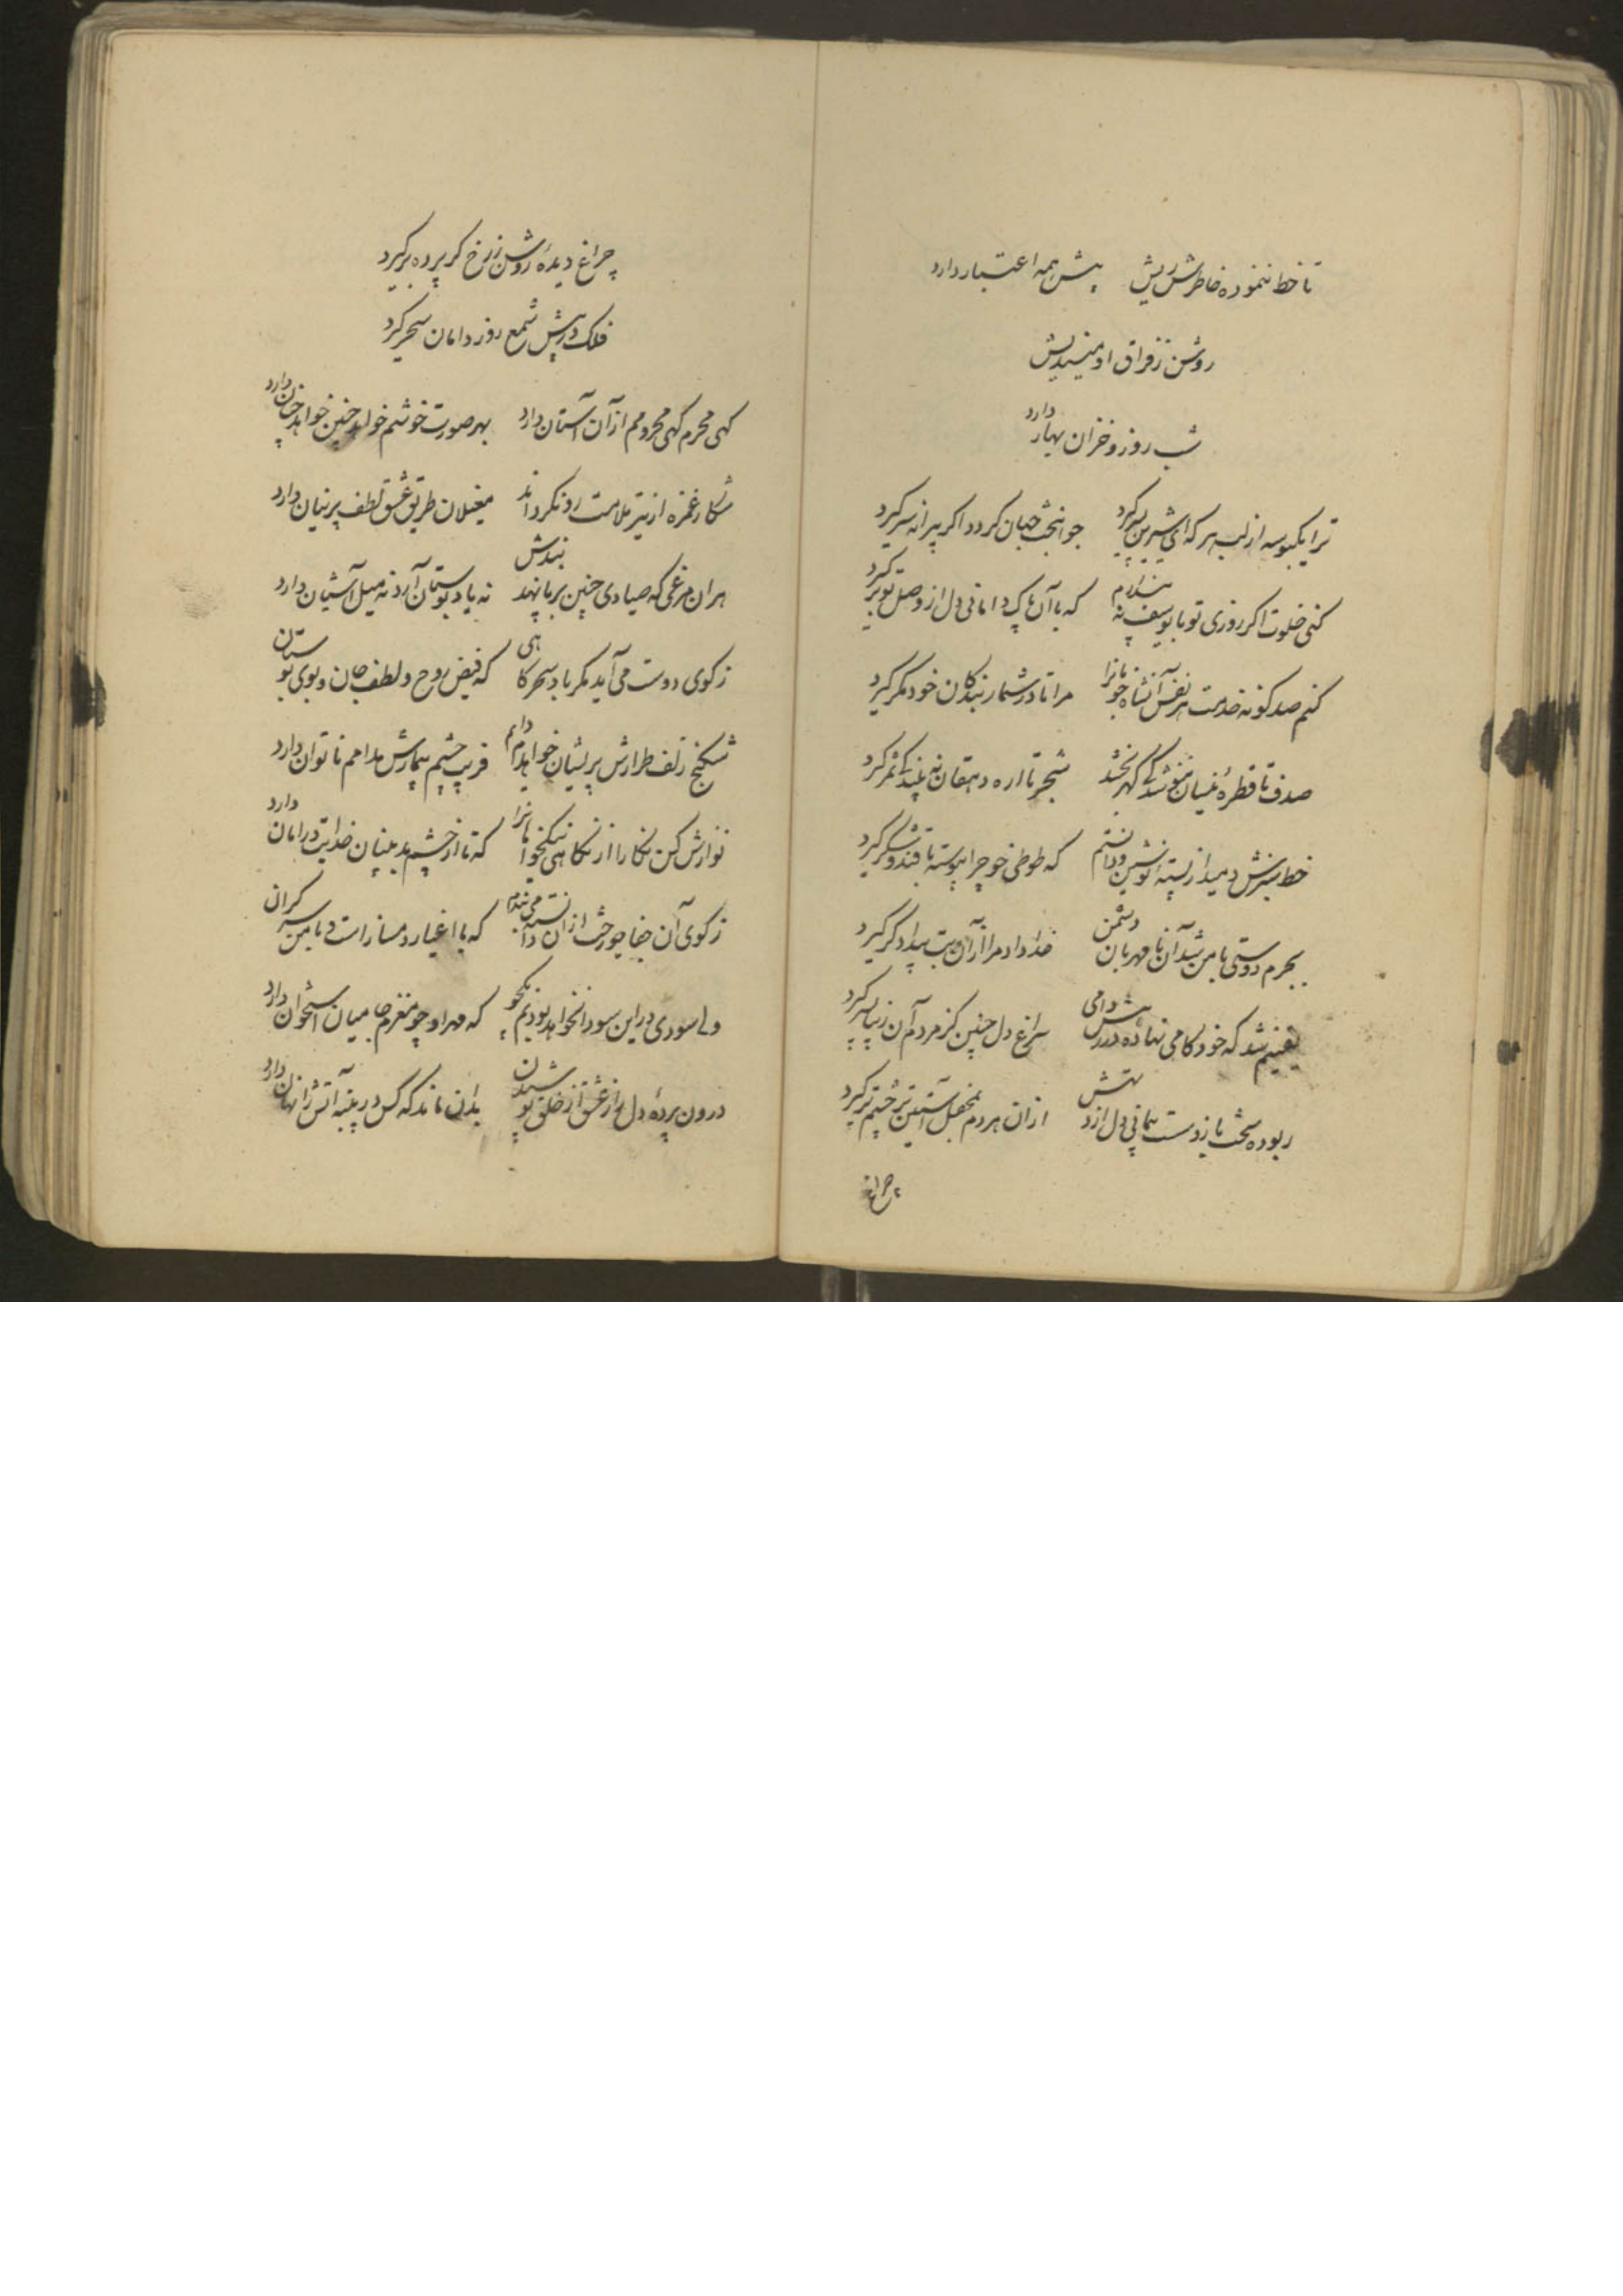 تا خط ننموده خاطرش ریش پیش همه اعتبار دارد
روشن ز فراق او میندیش
شب روز و خزان بهار دارد
ترا یکبوسه از لب هر که ای شیرین پسر گیرد جوانبخت جهان گردد اگر پیرانه سر گیرد
کنی خلوت اگر روزی تو با یوسف نپندارم که با آن پاک دامانی دل از وصل تو برگیرد
کنم صد گونه خدمت هر نفس آنشاه خوبانرا مرا تا در شمار بندگان خود مگر گیرد
صدف تا قطرهٔ نیسان ننوشد کی گهر بخشد شجر تا اره دهقان نه بیند کی ثمر گیرد
خط سبزش دمید از پسته نوشین و دانستم که طوطی خو چرا پیوسته با قند و شکر گیرد
بجرم دوستی با من شد آن نامهربان دشمن خدا داد مرا از آن بت بیدادگر گیرد
یقینم شد که خودکامی نهاده در رهش دامی سراغ دل چنین کز مردم آن زیبا پسر گیرد
ربوده سخت بازوست همانی دل از دستش از ان هر دم بمحفل آستین بر چشم تر گیرد
چراغ
چراغ دیدهٔ روشن ز رخ گر پرده برگیرد
فلک در پیش شمع روز دامان سحر گیرد
گهی محرم گهی محرومم از آن آستان دارد بهر صورت خوشم خواهد چنین خواهد چنان دارد
شکار غمزه از تیر ملامت رو نگرداند مغیلان طریق عشق لطف پرنیان دارد
هران مرغی که صیادی چنین بر پا نهد بندش نه یاد بوستان آرد نه میل آشیان دارد
ز کوی دوست می آید مگر باد سحرگاهی که فیض روح و لطف جان و بوی بوستان
شکنج زلف طرارش پریشان خواهدم دایم فریب چشم بیمارش مدامم ناتوان دارد
نوازش کن نگارا از نگاهی نیکخواهانرا که تا از چشم بد بینان خدایت در امان دارد
ز کوی آن جفاجو رخت از ان بستن نمی‌دانم که با اغیار دمساز است و با من سر گران
ولی سودی در این سودا نخواهد بودنم نیکو که مهر او چو مغزم جا میان استخوان دارد
درون پردهٔ دل راز عشق از خلق پوشیدن بدان ماند که کس در پنبه آتش را نهان دارد